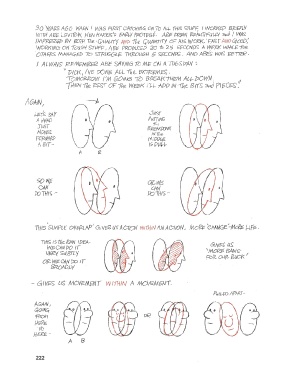 30 YEARS AGO WHEN I WAS FIRST CATCHING ON TO ALL THIS STUFF I WORKED BRIEFLY
WITH ABE LEVITOW, KEN HARRIS'S EARLY PROTEGÉ. ABE DREW BEAUTIFULLY and I WAS
IMPRESSED BY BOTH THE QUALITY AND THE QUANTITY OF HIS WORK. FAST AND GOOD.
WORKING ON TOUGH STUFF, ABE PRODUCED 20 to 25 SECONDS A WEEK WHILE THE
OTHERS MANAGED TO STRUGGLE THROUGH 5 SECONDS. AND ABE'S WAS BETTER.
I ALWAYS REMEMBER ABE SAYING TO ME ON A TUESDAY:
"DICK, I'VE DONE ALL THE EXTREMES.
TOMORROW I'M GOING TO BREAK THEM ALL DOWN.
THEN THE REST OF THE WEEK I'LL ADD IN THE BITS and PIECES."
AGAIN,
LET'S SAY
A HEAD
JUST
MOVES
FORWARD
A BIT -
A B
JUST
PUTTING
A
BREAKDOWN
IN THE
MIDDLE
IS DULL
SO WE
CAN
DO THIS -
OR WE
CAN
DO THIS -
THIS 'SIMPLE OVERLAP' GIVES US ACTION WITHIN AN ACTION. MORE 'CHANGE' - MORE LIFE.
THIS IS THE RAW IDEA.
WE CAN DO IT
VERY SUBTLY
OR WE CAN DO IT
BROADLY
GIVES US
"MORE BANG
FOR OUR BUCK"
- GIVES US MOVEMENT WITHIN A MOVEMENT.
PULLED APART -
AGAIN,
GOING
FROM
HERE
TO
HERE -
A B
OR
222